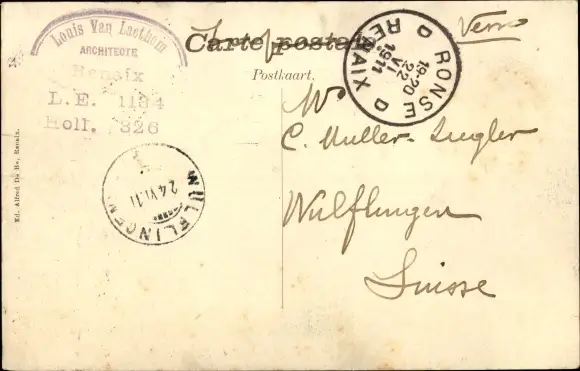 Louis Van Laethem
ARCHITECTE
Renaix
L.E. 1134
Holl. 326
Carte postale
Postkaart.
RONSE D
RENAIX D
19-20
22
VI
1911
Mr
C. Muller-Ziegler
Wulflingen
Suisse
WÜLFLINGEN
24.VI.11
Ed. Alfred De Re, Renaix.